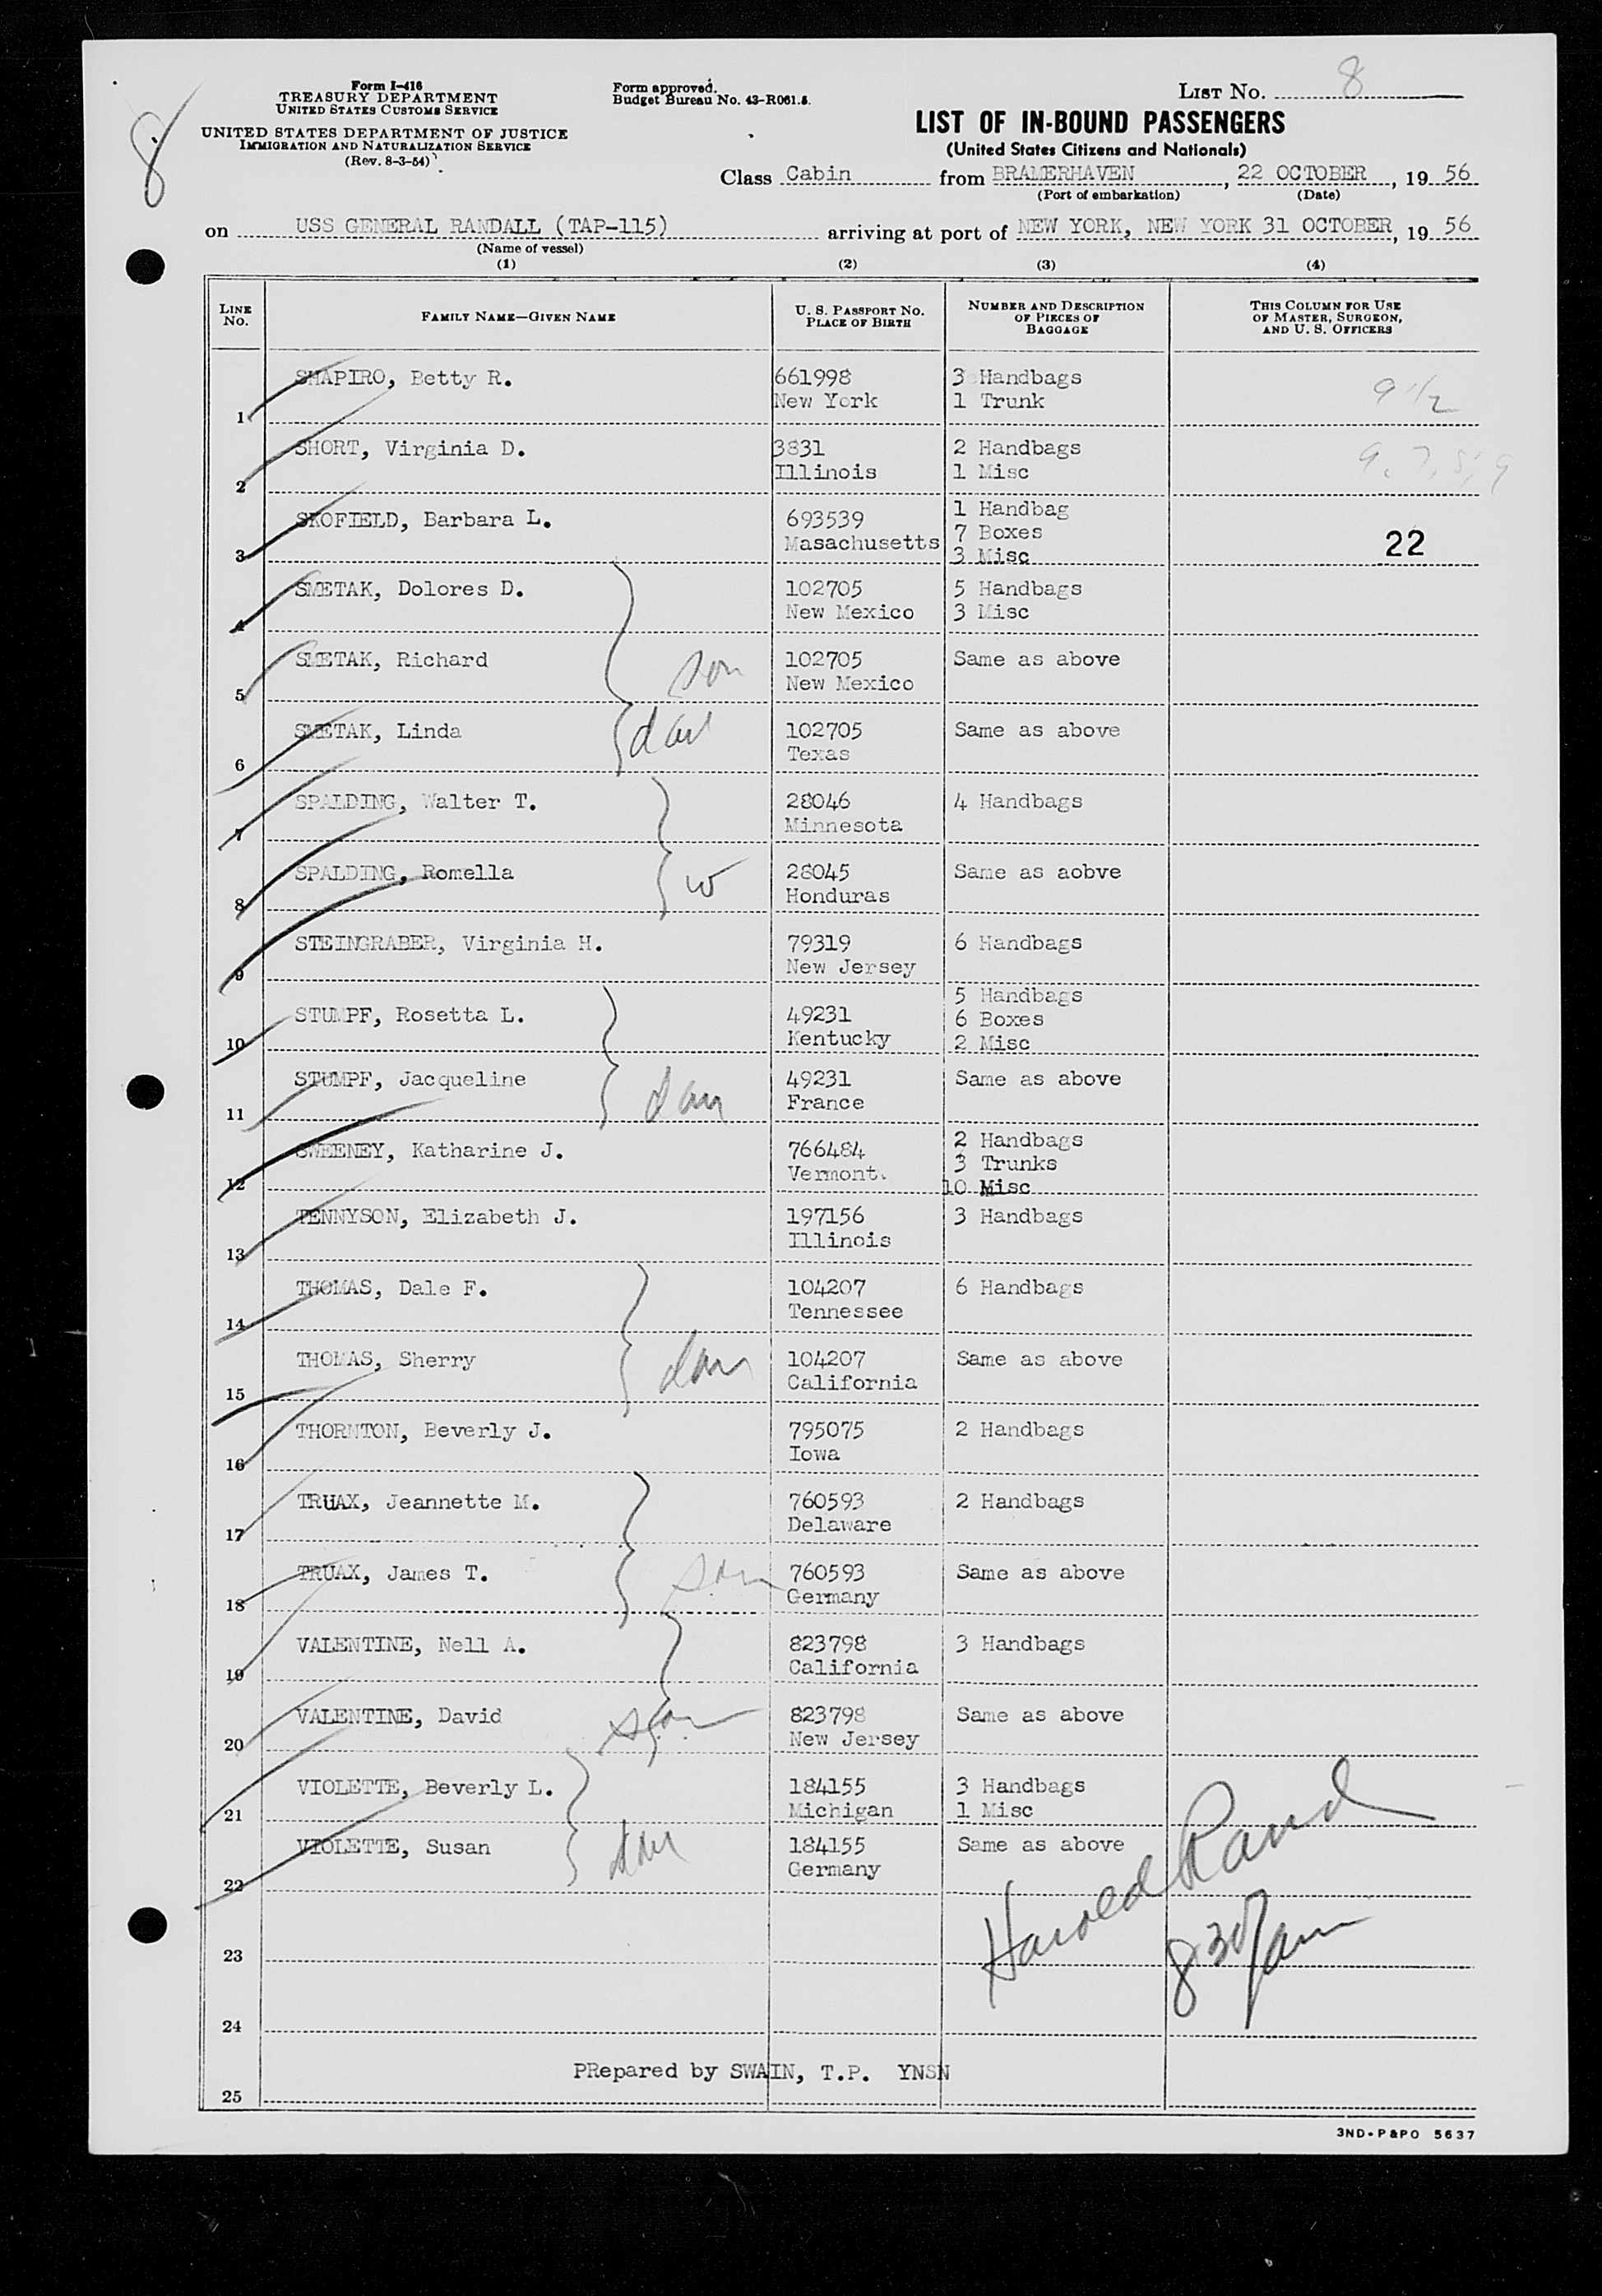 8
Form I-416
TREASURY DEPARTMENT
UNITED STATES CUSTOMS SERVICE
UNITED STATES DEPARTMENT OF JUSTICE
IMMIGRATION AND NATURALIZATION SERVICE
(Rev. 8-3-54)
Form approved.
Budget Bureau No. 43-R061.5.
LIST No. 8
LIST OF IN-BOUND PASSENGERS
(United States Citizens and Nationals)
Class Cabin from BRAMERHAVEN, 22 OCTOBER, 19 56
(Port of embarkation) (Date)
on USS GENERAL RANDALL (TAP-115) arriving at port of NEW YORK, NEW YORK 31 OCTOBER, 19 56
(Name of vessel)
(1) (2) (3) (4)
LINE No. FAMILY NAME—GIVEN NAME U. S. PASSPORT No. PLACE OF BIRTH NUMBER AND DESCRIPTION OF PIECES OF BAGGAGE THIS COLUMN FOR USE OF MASTER, SURGEON, AND U. S. OFFICERS
1 SHAPIRO, Betty R. 661998 3 Handbags
New York 1 Trunk 9 1/2
2 SHORT, Virginia D. 3831 2 Handbags
Illinois 1 Misc
3 SKOFIELD, Barbara L. 693539 1 Handbag
Masachusetts 7 Boxes 22
3 Misc
4 SMETAK, Dolores D. 102705 5 Handbags
New Mexico 3 Misc
5 SMETAK, Richard son 102705 Same as above
New Mexico
6 SMETAK, Linda dau 102705 Same as above
Texas
7 SPALDING, Walter T. 28046 4 Handbags
Minnesota
8 SPALDING, Romella w 28045 Same as aobve
Honduras
9 STEINGRABER, Virginia H. 79319 6 Handbags
New Jersey
10 STUMPF, Rosetta L. 49231 5 Handbags
Kentucky 6 Boxes
2 Misc
11 STUMPF, Jacqueline dau 49231 Same as above
France
12 SWEENEY, Katharine J. 766484 2 Handbags
Vermont. 3 Trunks
10 Misc
13 TENNYSON, Elizabeth J. 197156 3 Handbags
Illinois
14 THOMAS, Dale F. 104207 6 Handbags
Tennessee
15 THOMAS, Sherry dau 104207 Same as above
California
16 THORNTON, Beverly J. 795075 2 Handbags
Iowa
17 TRUAX, Jeannette M. 760593 2 Handbags
Delaware
18 TRUAX, James T. son 760593 Same as above
Germany
19 VALENTINE, Nell A. 823798 3 Handbags
California
20 VALENTINE, David son 823798 Same as above
New Jersey
21 VIOLETTE, Beverly L. 184155 3 Handbags
Michigan 1 Misc
22 VIOLETTE, Susan dau 184155 Same as above
Germany
Harold Rand
8 30 am
23
24
25 PRepared by SWAIN, T.P. YNSN
3ND-P&PO 5637